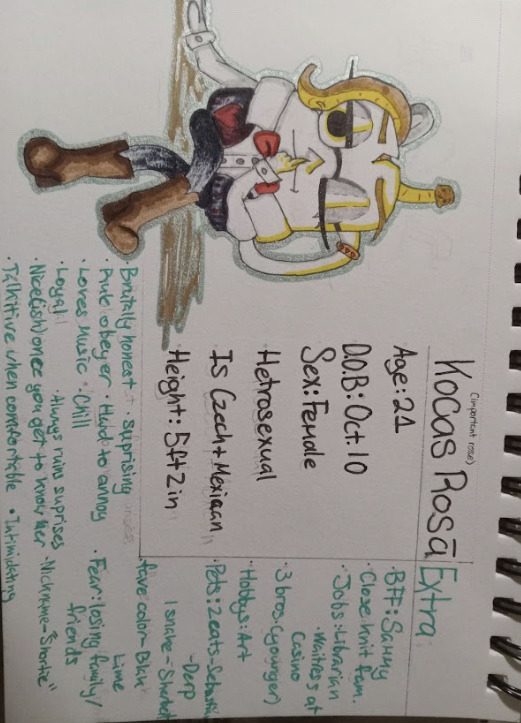 (important rose)
Kocas Rosā
Age: 21
D.O.B: Oct. 10
Sex: Female
Hetrosexual
Is Czech + Mexican
Height: 5ft 2in
Extra
• BFF: Sammy
• Close knit fam.
• Jobs: Librarian
• Waitress at
Casino
• 3 bros. (younger)
• Hobbys: Art
• Pets: 2 cats-
- Derp
1 snake-
• fave color-
Lime
• Fear: losing family/
friends
• Nickname- "Shortie"
• Intimidating
Brutally honest • suprising
• Hard to annoy
Loves music • Chill
• Loyal • Always ruins suprises
• Nice(ish) once you get to know her
• Talkitive when comfortable